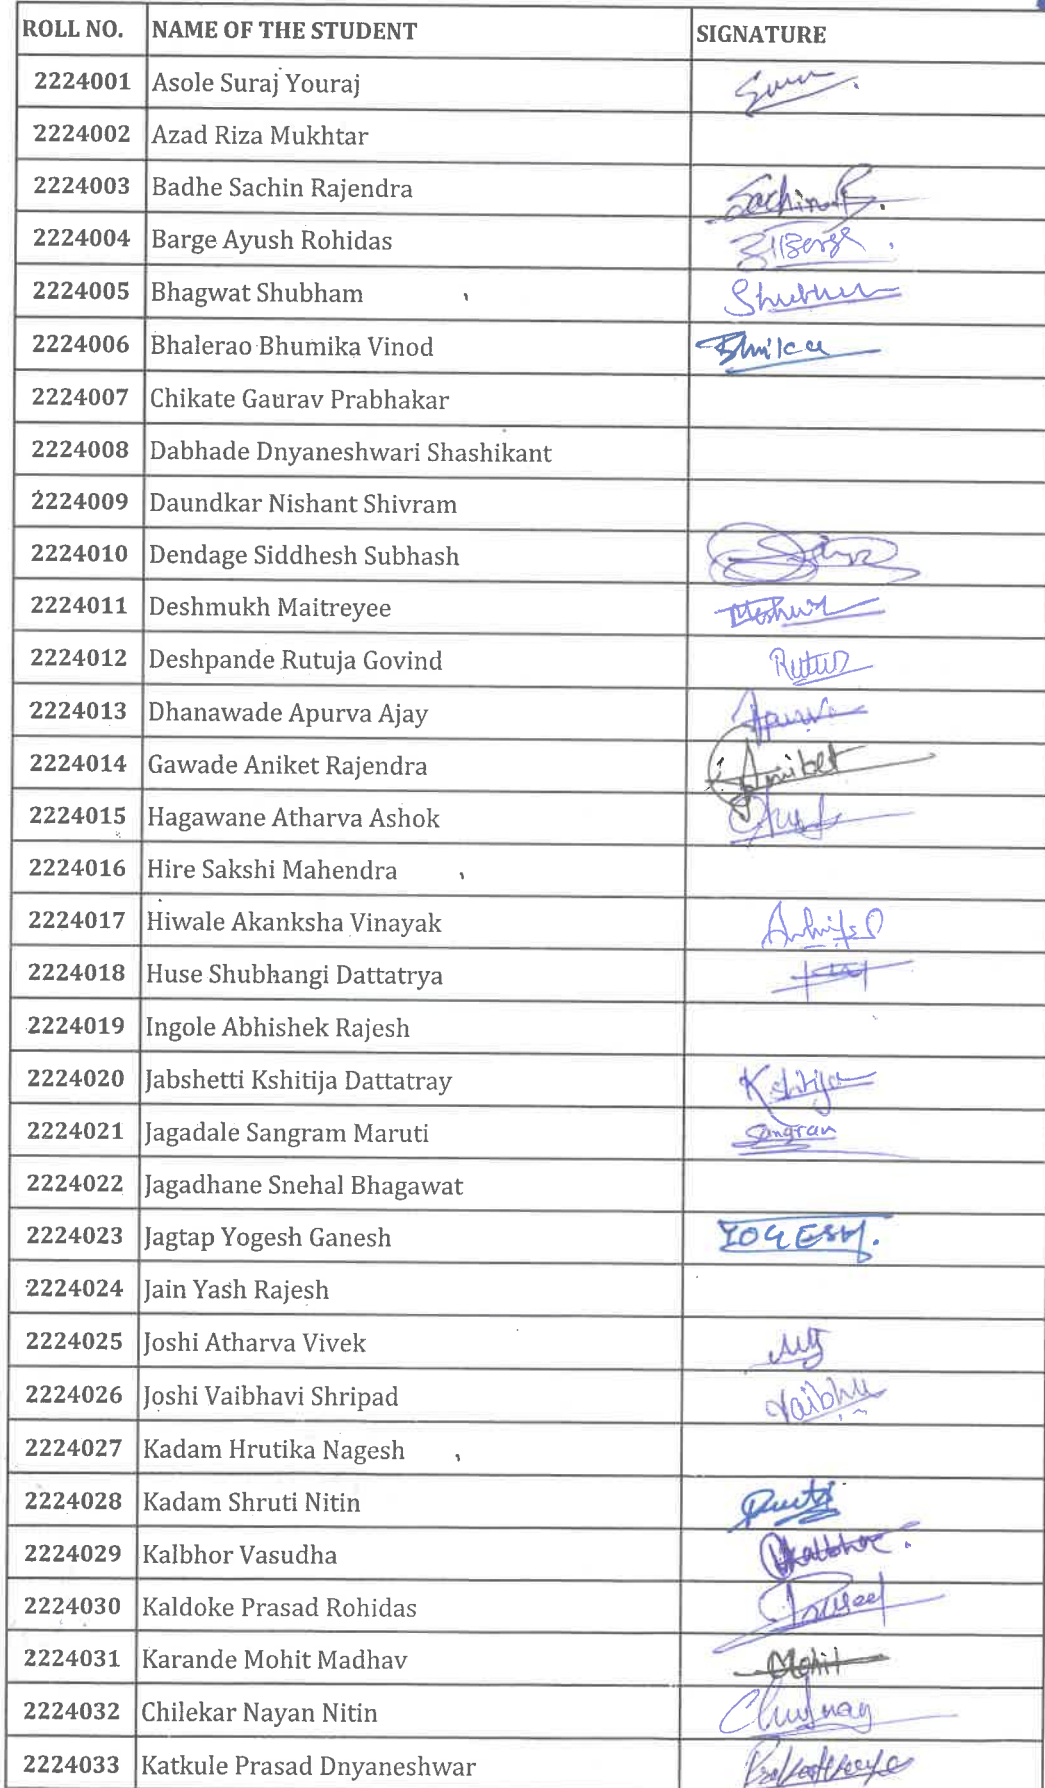 ROLL NO. NAME OF THE STUDENT SIGNATURE
2224001 Asole Suraj Youraj
2224002 Azad Riza Mukhtar
2224003 Badhe Sachin Rajendra Sachin
2224004 Barge Ayush Rohidas
2224005 Bhagwat Shubham
2224006 Bhalerao Bhumika Vinod
2224007 Chikate Gaurav Prabhakar
2224008 Dabhade Dnyaneshwari Shashikant
2224009 Daundkar Nishant Shivram
2224010 Dendage Siddhesh Subhash
2224011 Deshmukh Maitreyee
2224012 Deshpande Rutuja Govind
2224013 Dhanawade Apurva Ajay Apurva
2224014 Gawade Aniket Rajendra Aniket
2224015 Hagawane Atharva Ashok
2224016 Hire Sakshi Mahendra
2224017 Hiwale Akanksha Vinayak
2224018 Huse Shubhangi Dattatrya
2224019 Ingole Abhishek Rajesh
2224020 Jabshetti Kshitija Dattatray Kshitija
2224021 Jagadale Sangram Maruti Sangram
2224022 Jagadhane Snehal Bhagawat
2224023 Jagtap Yogesh Ganesh YOGESH.
2224024 Jain Yash Rajesh
2224025 Joshi Atharva Vivek
2224026 Joshi Vaibhavi Shripad
2224027 Kadam Hrutika Nagesh
2224028 Kadam Shruti Nitin
2224029 Kalbhor Vasudha
2224030 Kaldoke Prasad Rohidas
2224031 Karande Mohit Madhav Mohit
2224032 Chilekar Nayan Nitin
2224033 Katkule Prasad Dnyaneshwar